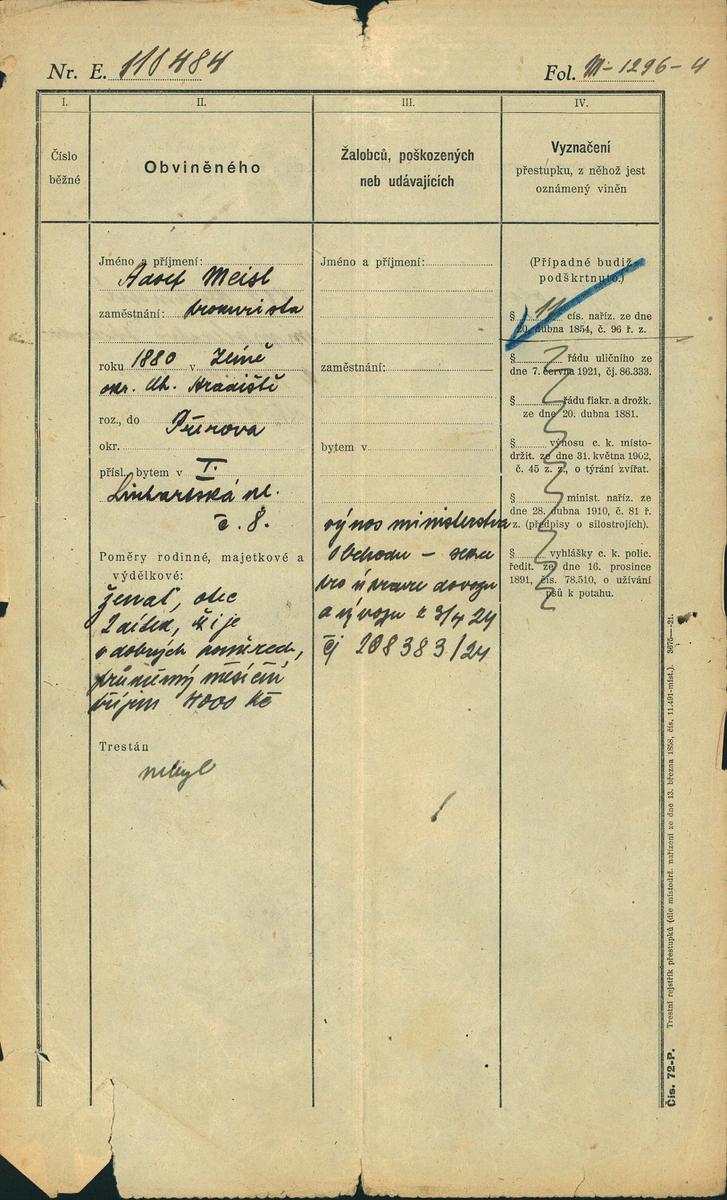 Nr. E. 110484
Fol. M-1296-4
I.
II.
III.
IV.
Číslo
běžné
Obviněného
Žalobců, poškozených
neb udávajících
Vyznačení
přestupku, z něhož jest
oznámený viněn
Jméno a příjmení:
Adolf Meisl
zaměstnání: prokurista
roku 1880 v Země
okr. Uh. Hradiště
roz., do Přerova
okr.
přísl. bytem v I.
Linhartská ul.
č. 8.
Poměry rodinné, majetkové a
výdělkové:
ženat, otec
2 dítek, žije
v dobrých poměrech,
průměrný měsíční
příjem 4000 Kč
Trestán
nebyl
Jméno a příjmení:
zaměstnání:
bytem v
výnos ministerstva
obchodu – sekce
pro úpravu dovozu
a vývozu z 3/4 24
čj 208383/24
(Případné budiž
podškrtnuto.)
§ 11 cís. naříz. ze dne
20. dubna 1854, č. 96 ř. z.
§ řádu uličního ze
dne 7. června 1921, čj. 86.333.
§ řádu fiakr. a drožk.
ze dne 20. dubna 1881.
§ výnosu c. k. místo-
držit. ze dne 31. května 1902,
č. 45 z. z., o týrání zvířat.
§ minist. naříz. ze
dne 28. dubna 1910, č. 81 ř.
z. (předpisy o silostrojích).
§ vyhlášky c. k. polic.
ředit. ze dne 16. prosince
1891, čís. 78.510, o užívání
psů k potahu.
Čís. 72-P. Trestní rejstřík přestupků (dle místodrž. nařízení ze dne 13. března 1858, čís. 11.491-míst.). 3675—21.